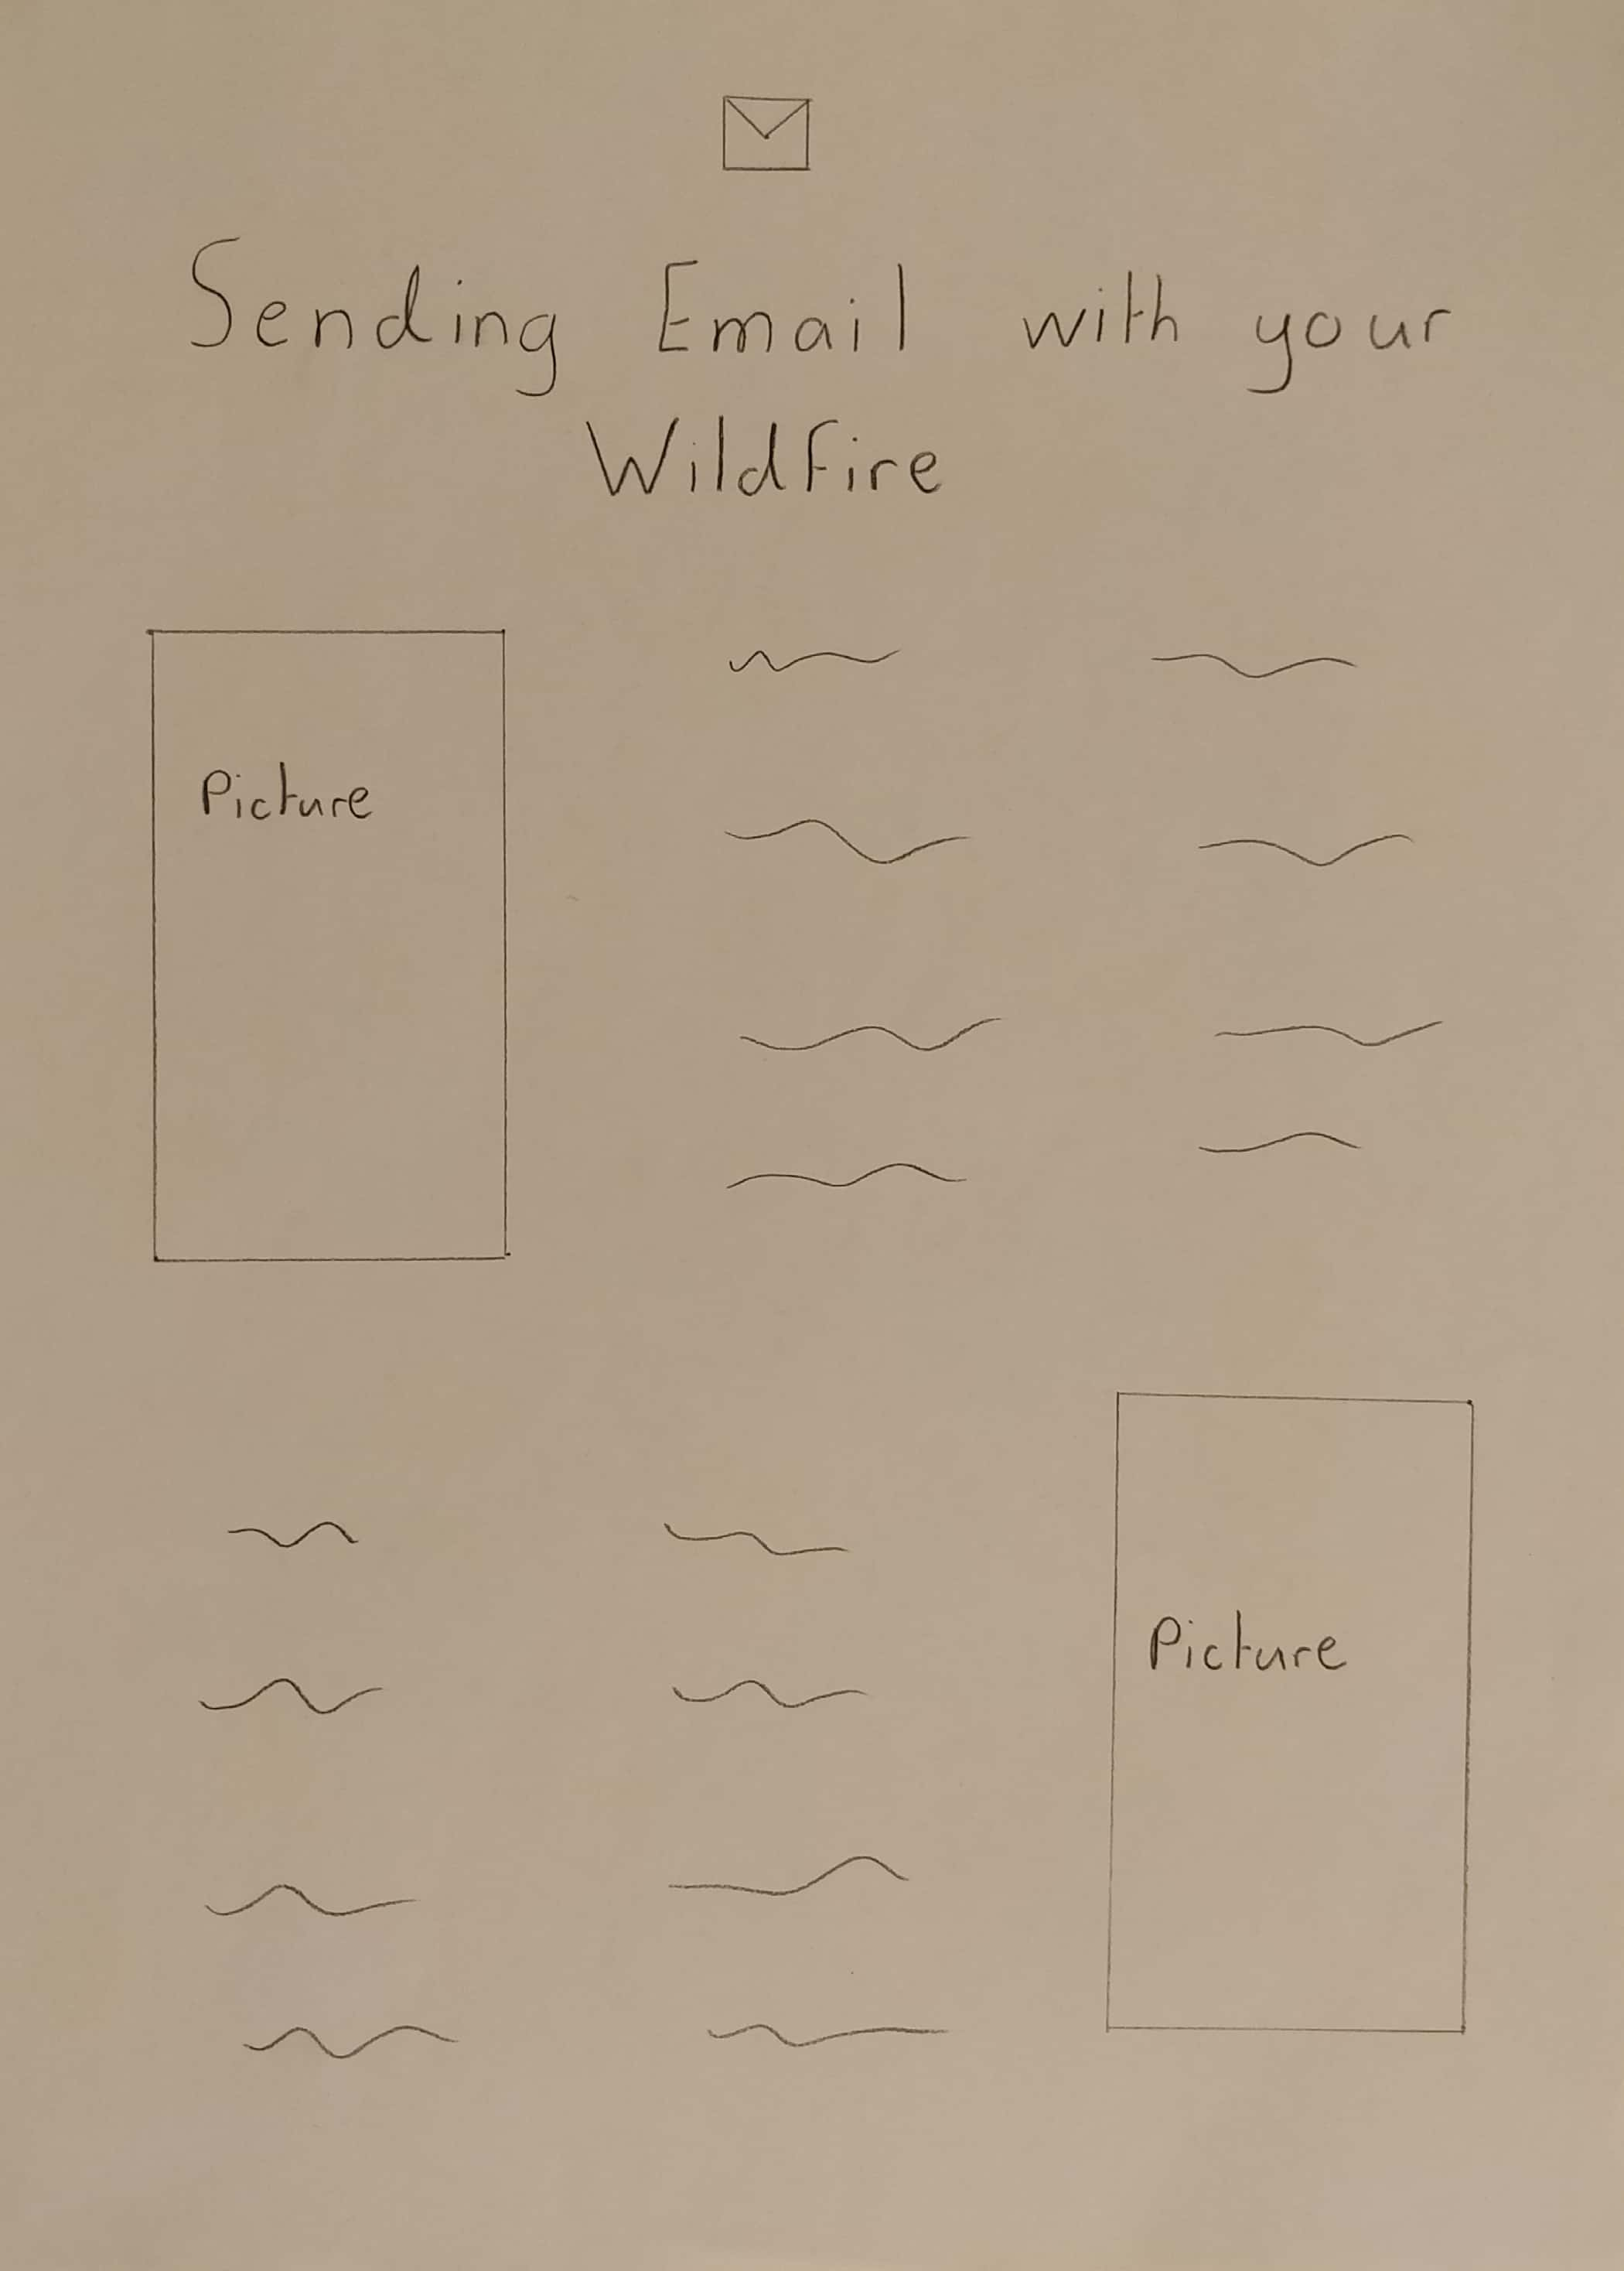 Sending Email with your
Wildfire
Picture
Picture